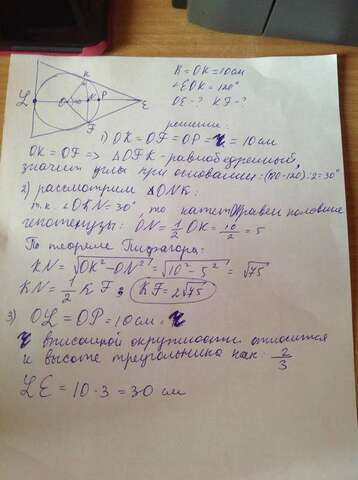 R=OK=10см
∠EOK=120°
OE-? KF-?
решение:
1) OK=OF=OP=r=10см
OK=OF => ΔOFK-равнобедренный,
значит углы при основании: (180-120):2=30°
2) рассмотрим ΔONK:
т.к. ∠OKN=30°, то катет равен половине
гипотенузы: ON=1/2 OK=10/2=5
По теореме Пифагора:
KN=√OK²-ON²=√10²-5²=√75
KN=1/2 KF; KF=2√75
3) OL=OP=10см=r
r вписанной окружности относится
к высоте треугольника как: 2/3
LE=10·3=30 см
L O N P E K F